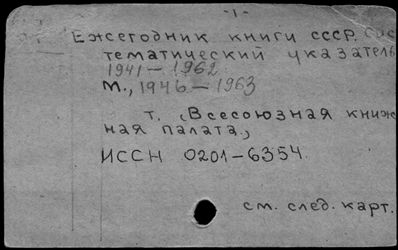 -1-
Ежегодник книги СССР. Сис
тематический указатель
1941-1962
М., 1946-1963
т. (Всесоюзная книж
ная палата)
ИССН 0201-6354
см. след. карт.